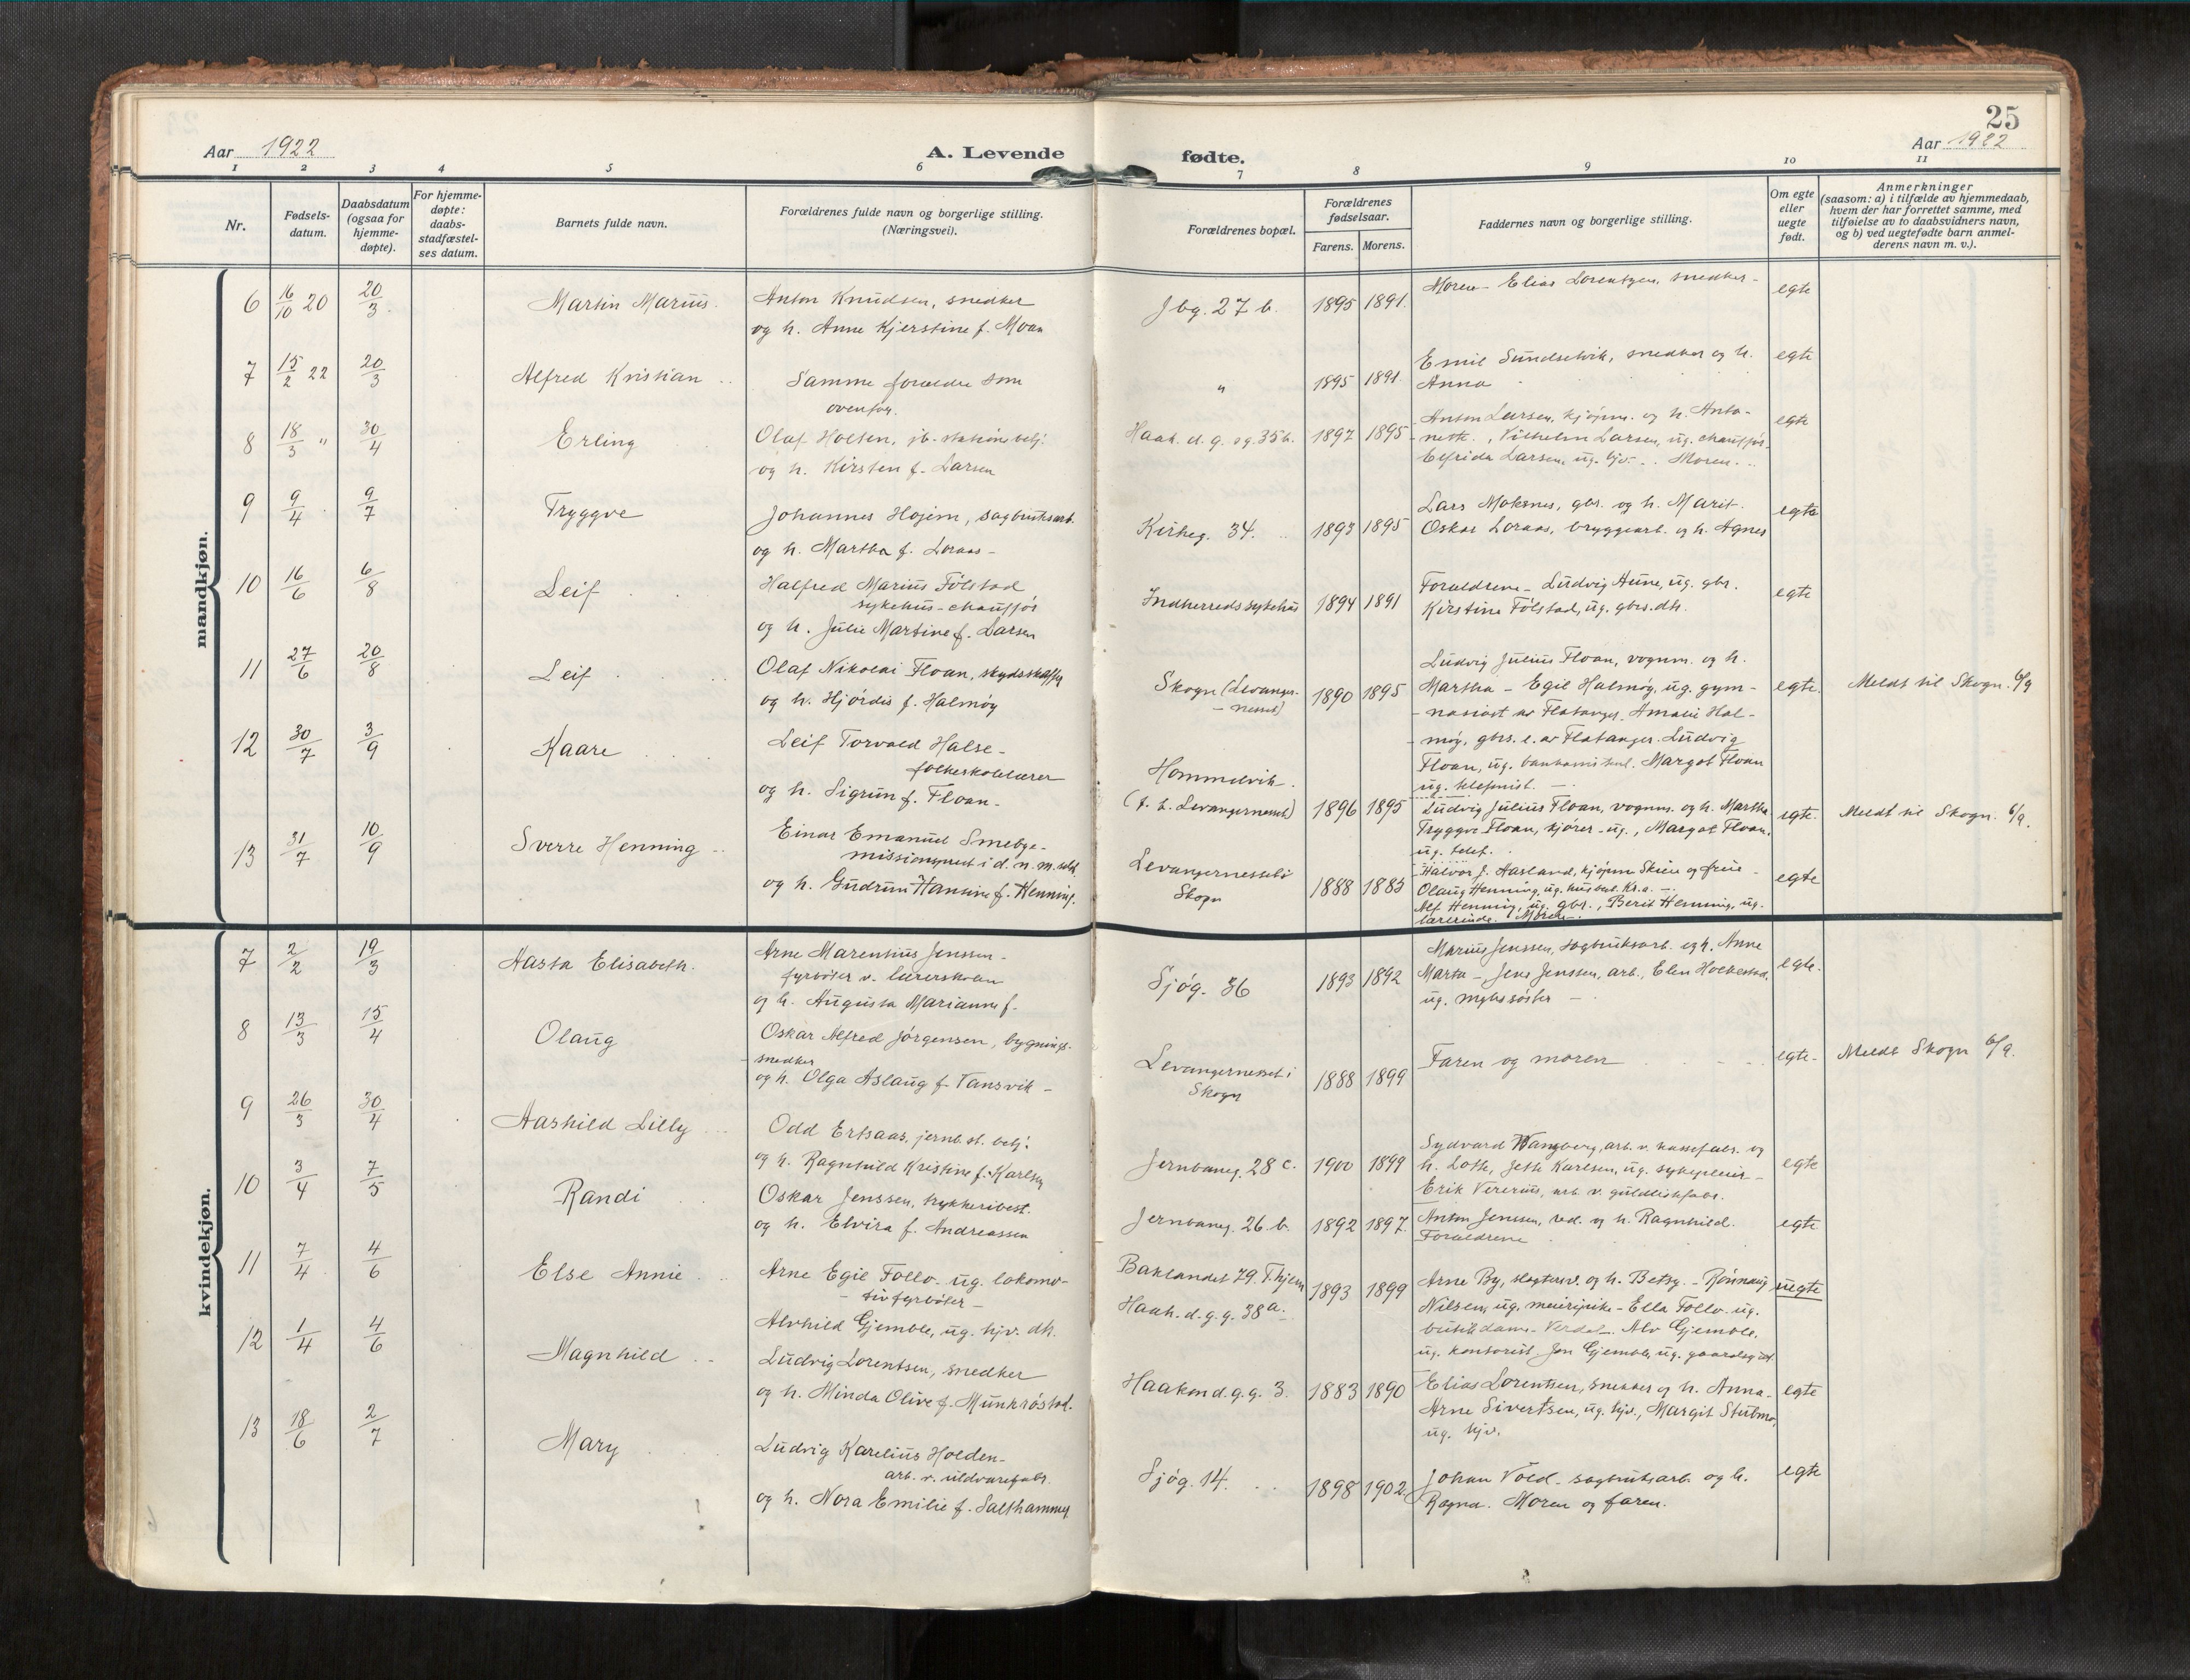 25
Aar 1922
A. Levende fødte.
Aar 1922
1 2 3 4 5 6 7 8 9 10 11
Nr.
Fødsels-
datum.
Daabsdatum
(ogsaa for
hjemme-
døpte).
For hjemme-
døpte:
daabs-
stadfæstel-
ses datum.
Barnets fulde navn.
Forældrenes fulde navn og borgerlige stilling.
(Næringsvei).
Forældrenes bopæl.
Forældrenes
fødselsaar.
Farens. Morens.
Faddernes navn og borgerlige stilling.
Om egte
eller
uegte
født.
Anmerkninger
(saasom: a) i tilfælde av hjemmedaab,
hvem der har forrettet samme, med
tilføielse av to daabsvidners navn,
og b) ved uegtefødte barn anmel-
derens navn m. v.).
mandkjøn.
6 16/10 20 20/3 Martin Marius. Anton Knudsen, snedker
og h. Anne Kjerstine f. Moan
Jbg. 27 b. 1895 1891. Moren - Elias Lorentzen, snedker - egte
7 15/2 22 20/3 Alfred Kristian Samme forældre som
ovenfor.
" 1895 1891. Emil Sundselvik, snedker og h.
Anna
egte
8 18/3 " 30/4 Erling Olaf Holten, jb. stationsbetj.
og h. Kirsten f. Larsen
Haak. d. g. g. 35 b. 1897 1895 Anton Larsen, kjøpm. og h. Anto-
nette, Vilhelm Larsen, ug. chauffør.
Elfrida Larsen, ug. hjv. - Moren.
egte
9 9/4 9/7 Tryggve Johannes Hojem, sagbruksarb.
og h. Martha f. Loraas -
Kirkeg. 34. 1893 1895 Lars Moksnes, gbr. og h. Marit.
Oskar Loraas, bryggearb. og h. Agnes
egte
10 16/6 6/8 Leif Halfred Marius Følstad,
sykehus-chauffør
og h. Julie Martine f. Larsen
Indherreds sykehus 1894 1891 Forældrene - Ludvig Aune, ug. gbr.
Kirstine Følstad, ug. gbrs. dtr.
egte
11 27/6 20/8 Leif Olaf Nikolai Floan, skydsskaffer
og h. Hjørdis f. Halmøy
Skogn (Levanger-
- nesset)
1890 1895 Ludvig Julius Floan, vognm. og h.
Martha - Egil Halmøy, ug. gym-
nasiast av Flatanger, Amalie Hal-
møy, gbrs. e. av Flatanger. Ludvig
Floan, ug. Margot Floan
ug. telefonist. -
egte. Meldt til Skogn. 6/9
12 30/7 3/9 Kaare Leif Torvald Halse -
folkeskolelærer
og h. Sigrun f. Floan -
Hommelvik.
(f. t. Levangernesset)
1896 1895 Ludvig Julius Floan, vognm. og h. Martha
Tryggve Floan, kjører - ug., Margot Floan,
ug. telef.
egte. Meldt til Skogn. 6/9.
13 31/7 10/9 Sverre Henning Einar Emanuel Smebye -
missionsprest i d. n. m. selsk
og h. Gudrun Hansine f. Henning.
Levangernesset i
Skogn
1888 1885 Halvor J. Hasland, kjøpm Skien og frue -
Olaug Henning, ug. husbest. Kr.a. -
Alf Henning, ug. gbr., Berit Henning, ug.
lærerinde.
egte
kvindekjøn.
7 2/2 19/3 Aasta Elisabeth. Arne Marentius Jenssen -
fyrbøter v. lærerskolen
og h. Augusta Marianne f.
Sjøg. 36 1893 1892 Marius Jenssen, sagbruksarb. og h. Anne
Marta - Jens Jenssen, arb., Elen
ug. søster -
egte.
8 13/3 15/4 Olaug Oskar Alfred Jørgensen, bygnings-
snedker
og h. Olga Aslaug f. Tansvik -
Levangernesset i
Skogn
1888 1899 Faren og moren egte - Meldt Skogn 6/9.
9 26/3 30/4 Aashild Lilly Odd Ertsaas, jernb. st. betj.
og h. Ragnhild Kristine f. Karlsen
Jernbaneg. 28 c. 1900 1899 Sydvard Wangberg, arb. v. kassefabr. og
h. Lotte, Jette Karlsen, ug. sykepleier -
Erik Vererius, arb. v. guldlistfabr.
egte
10 3/4 7/5 Randi Oskar Jenssen, trykkeribest.
og h. Elvira f. Andreassen
Jernbaneg. 26 b. 1892 1897. Anton Jenssen, red. og h. Ragnhild.
Forældrene
egte
11 7/4 4/6 Else Annie Arne Egil Follo - ug. lokomo-
- tivfyrbøter -
Alvhild Gjemble, ug. hjv. dtr.
Baklandet 79. T.hjem
Haak. d. g. g. 38 a.
1893 1899 Arne By, slagterm. og h. Betsy. - Rønnaug
Nilsen, ug. meieripike - Ella Follo - ug.
butikdame - Verdal. Alv Gjemble,
ug. kontorist Jon Gjemble, ug. gaardsgut
uegte
12 1/4 4/6 Magnhild Ludvig Lorentsen, snedker
og h. Minda Olive f. Munkrøstad.
Haakon d. g. g. 3. 1883 1890 Elias Lorentsen, snekker og h. Anna -
Arne Sivertsen, ug. hjv., Margit Stubmo,
ug. hjv.
egte
13 18/6 2/7 Mary Ludvig Karelius Holden -
arb. v. uldvarefabr.
og h. Nora Emilie f. Salthammer
Sjøg. 14. 1898 1902. Johan Vold - sagbruksarb. og h.
Ragna. Moren og faren.
egte